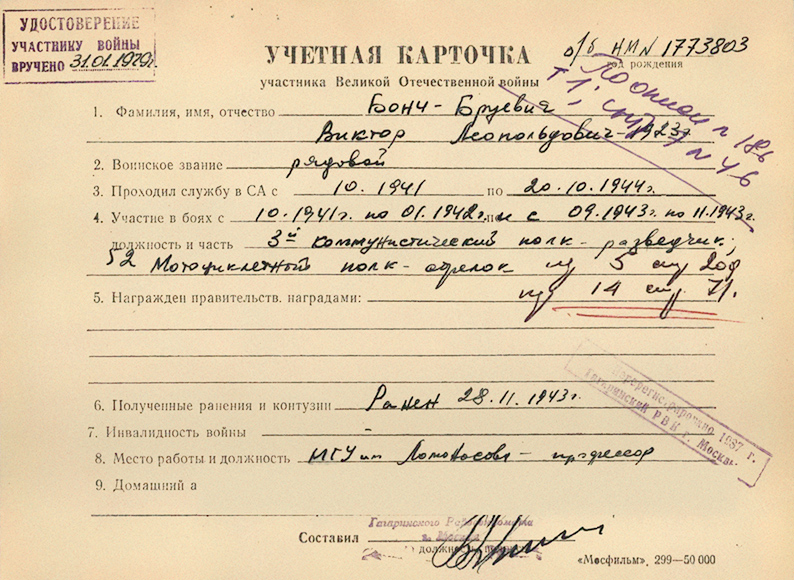 УДОСТОВЕРЕНИЕ
УЧАСТНИКУ ВОЙНЫ
ВРУЧЕНО 31.01.1979г.
УЧЕТНАЯ КАРТОЧКА
участника Великой Отечественной войны
о/б НМ№ 1773803
год рождения
1. Фамилия, имя, отчество Бонч-Бруевич
Виктор Леопольдович - 1923г
2. Воинское звание рядовой
3. Проходил службу в СА с 10.1941 по 20.10.1944г.
4. Участие в боях с 10.1941г. по 01.1942г. и с 09.1943г. по 11.1943г.
должность и часть 3й коммунистический полк - разведчик,
52 Мотоциклетный полк - стрелок
5. Награжден правительств. наградами:
6. Полученные ранения и контузии Ранен 28.11.1943г.
7. Инвалидность войны -
8. Место работы и должность МГУ им Ломоносова - профессор
9. Домашний а
Перерегистрировано 1987 г.
Гагаринский РВК г. Москвы
Составил
Гагаринского
г. Москвы
«Мосфильм» 299—50 000